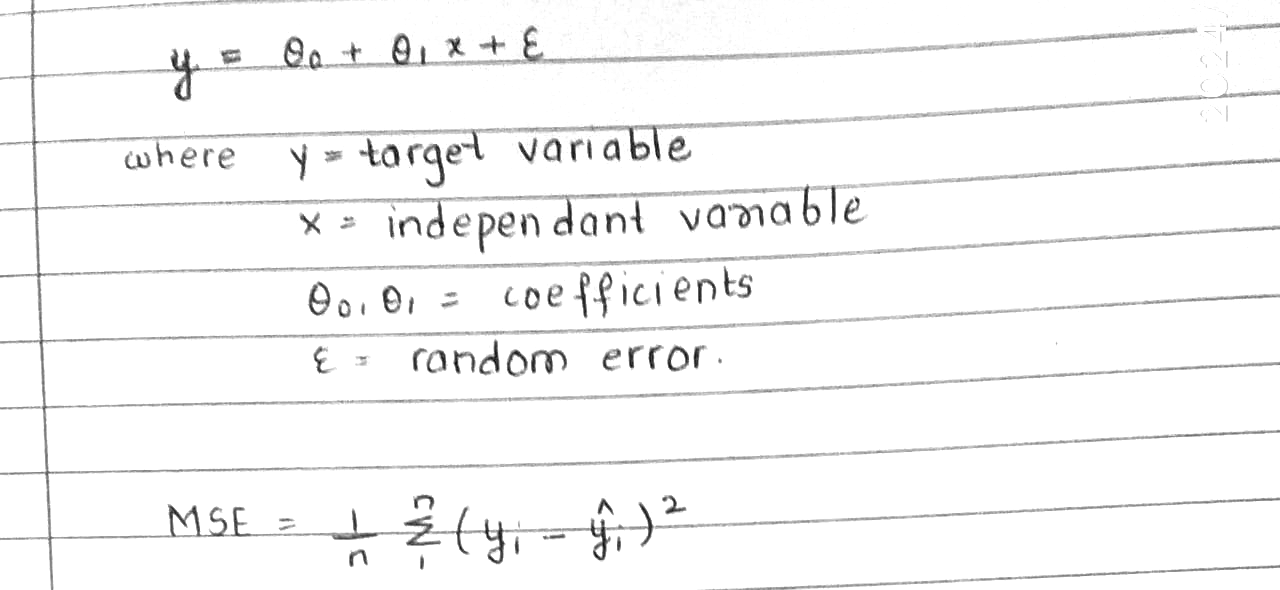 y = θ₀ + θ₁ x + ε
where y = target variable
x = independant variable
θ₀, θ₁ = coefficients
ε = random error.
MSE = 1/n Σ₁ⁿ (yᵢ - ŷᵢ)²